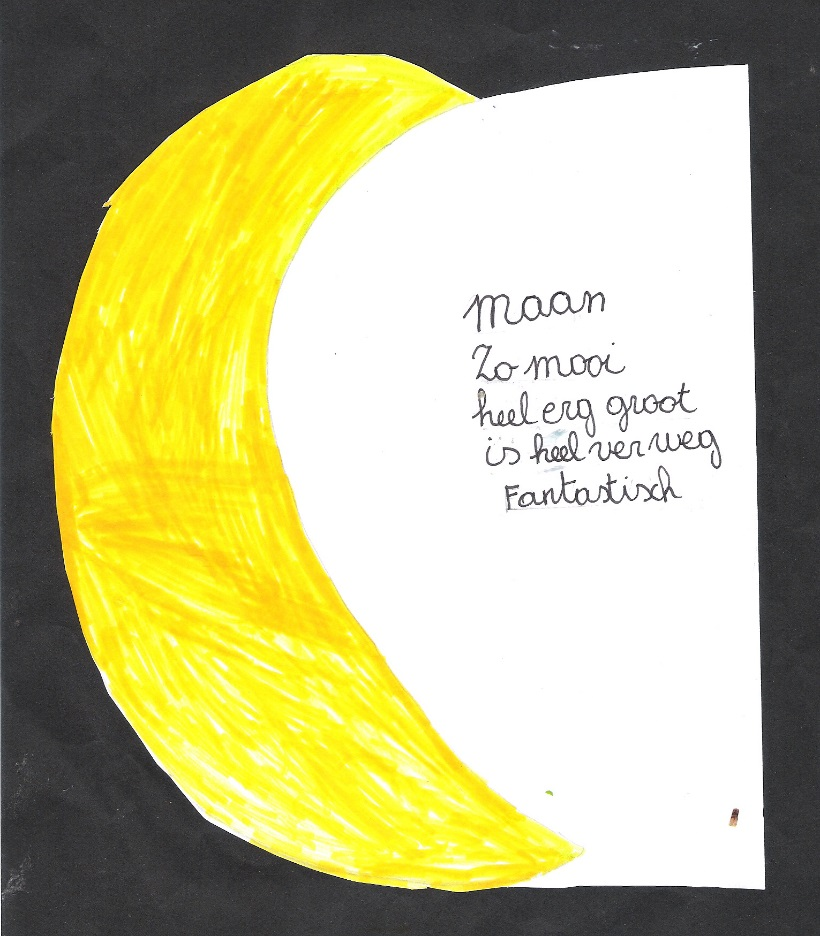 Maan
Zo mooi
heel erg groot
is heel ver weg
Fantastisch